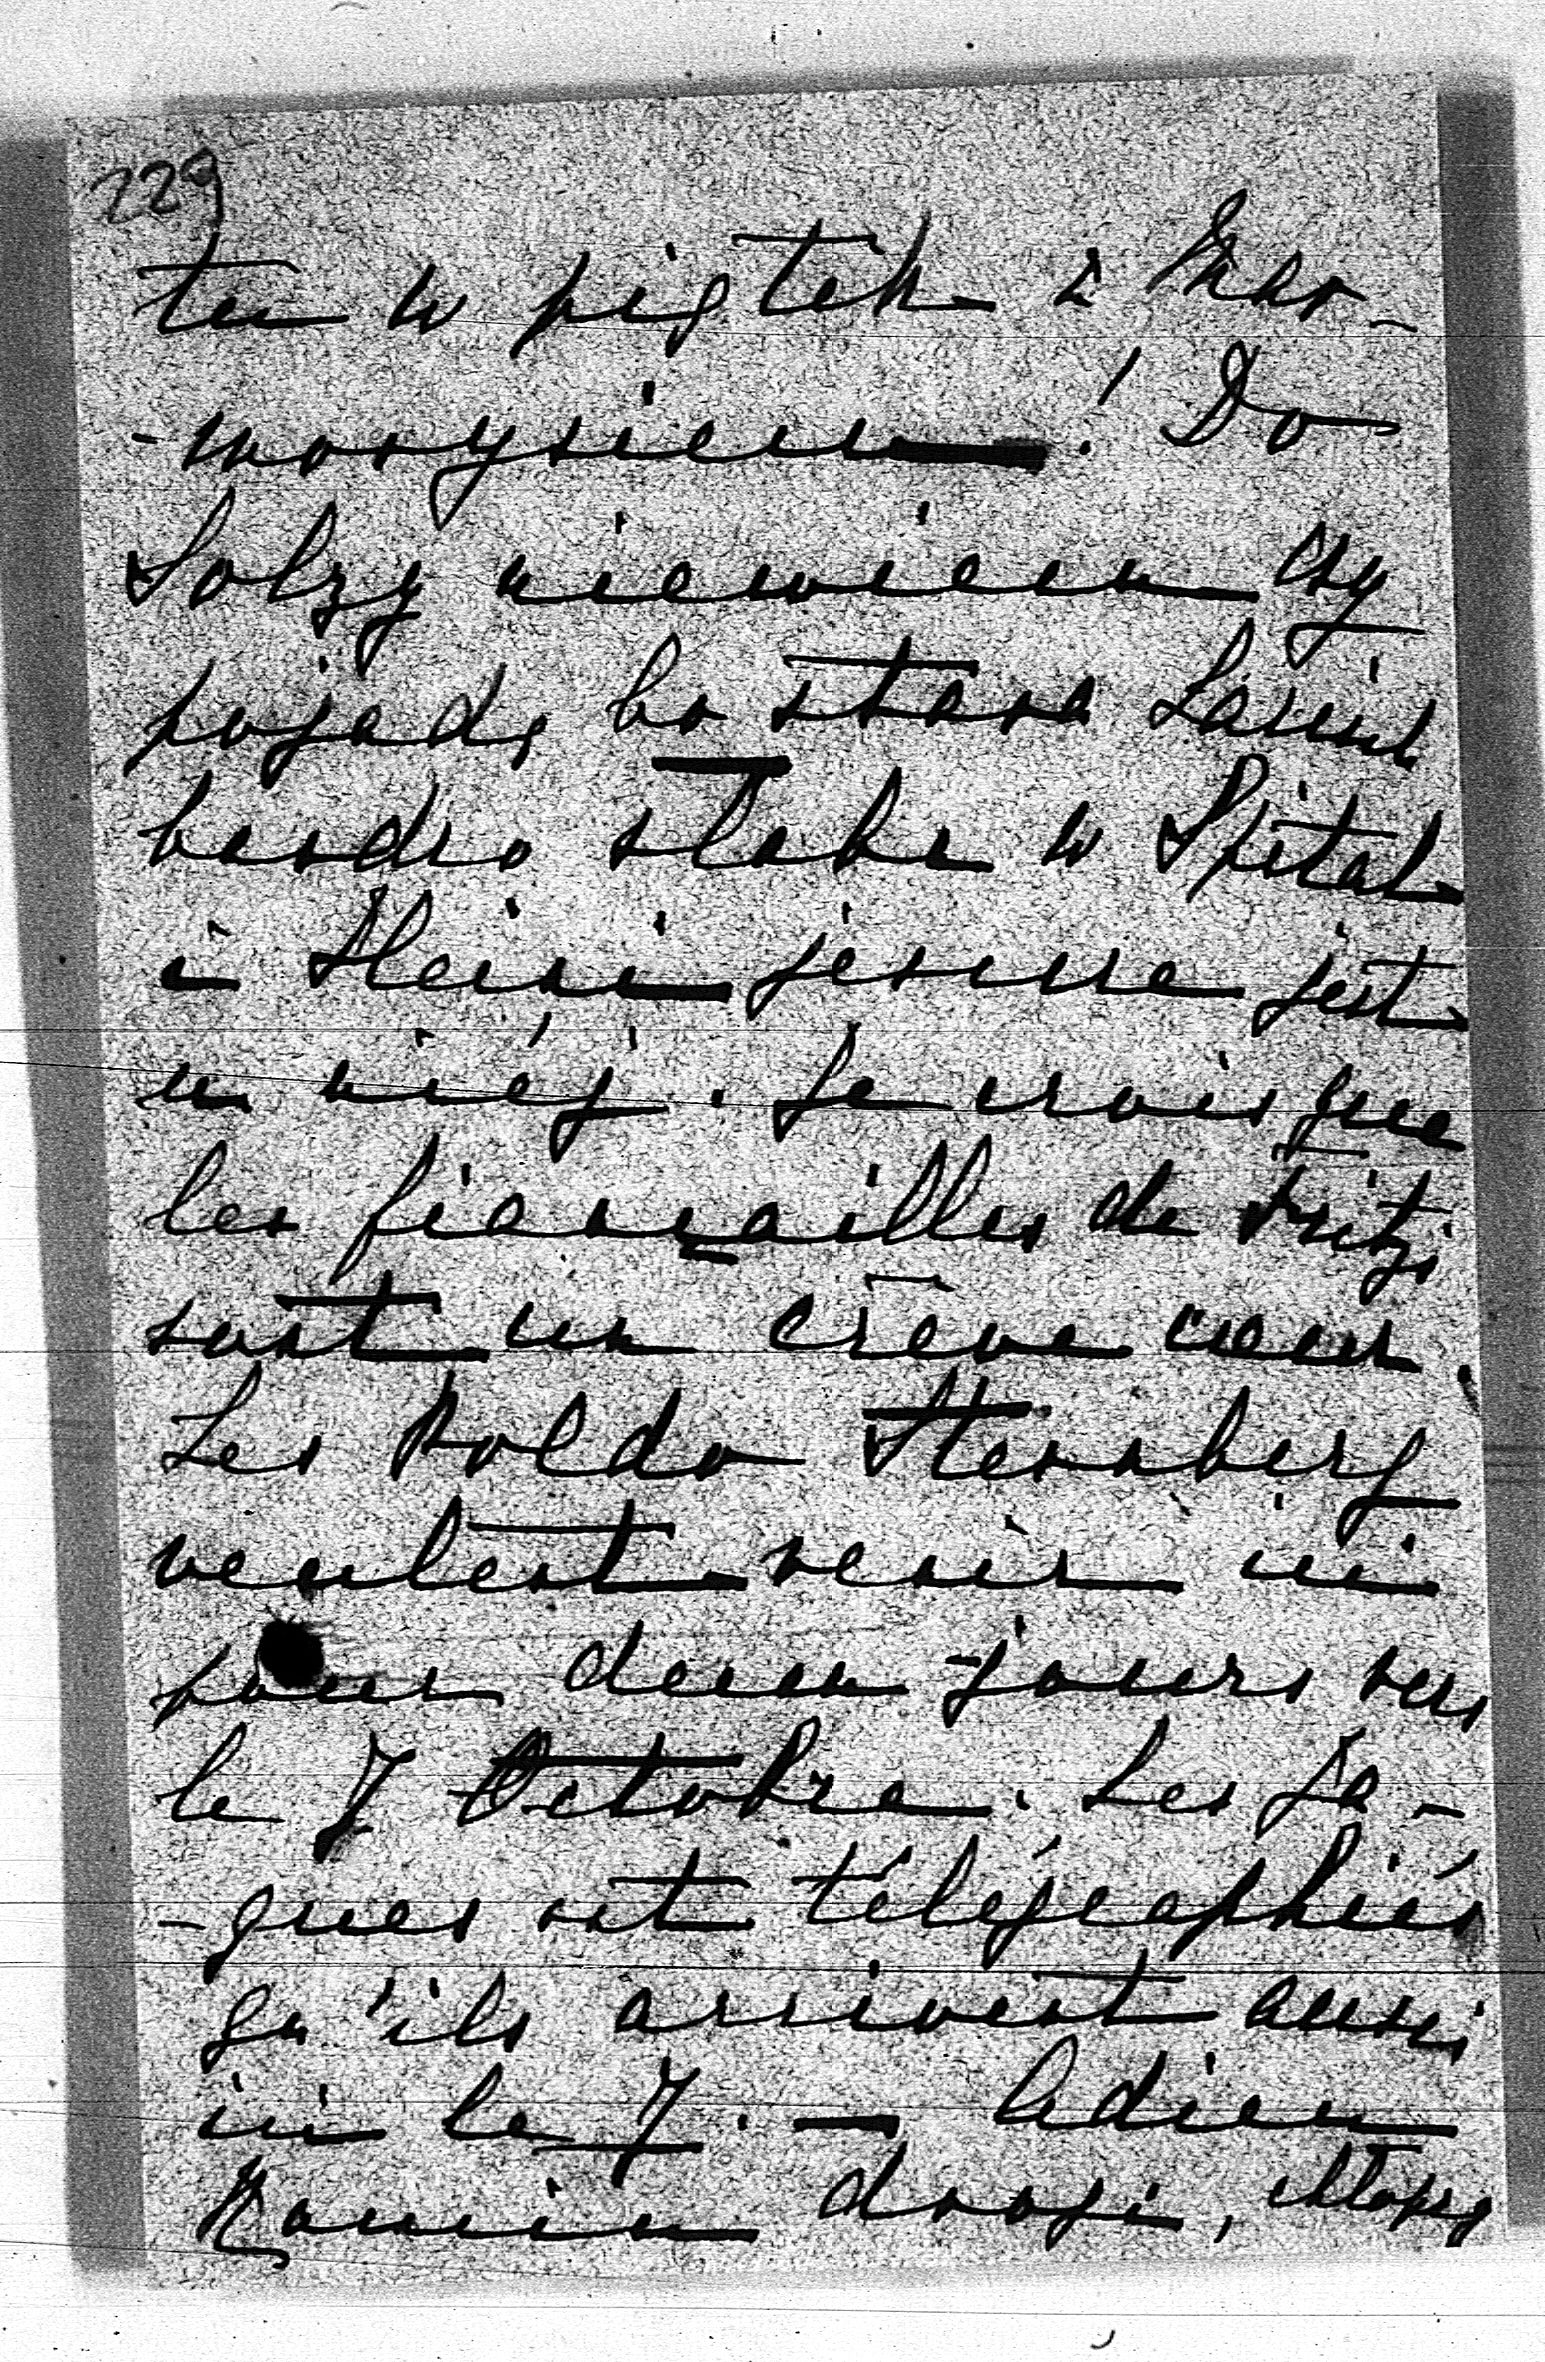 229
ten w piątek z Mko-
-morysiem! Do
Solzy niewiem czy
pojadę bo stara Larisch
bardzo słaba w Spital
i Heini jeszcze jest
u niéj. Je crois que
les fiançailles de Fritzi
sont un crève cœur.
Les Poldo Sternberg
veulent venir ici
pour deux jours vers
le 7 Octobre. Les Ja-
-ques ont télégraphiés
qu'ils arrivent aussi
ici le 7. — Adieu
Koniu drogi, chłopcy